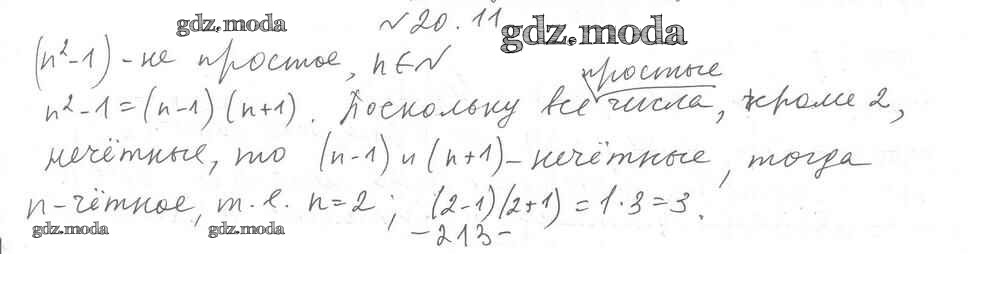 gdz.moda
№20.11
gdz.moda
(n²-1) - не простое, n∈N
простые
n²-1=(n-1)(n+1). Поскольку все числа, кроме 2,
нечётные, то (n-1) и (n+1) - нечётные, тогда
n-чётное, т.е. n=2; (2-1)(2+1)=1·3=3.
gdz.moda gdz.moda
-213-